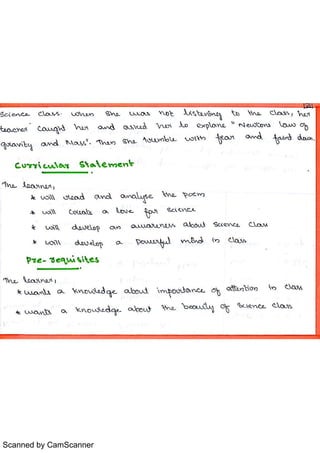 Science class. When she was not listening to the class, her
teacher caught her and asked her to explane "Newtons Law of
gravity and Mass". Then she tremble with fear and faint down.
Curricular Statement
The learner,
* will read and analyse the poem
* will create a love for science
* will develop an awareness about Science Class
* will develop a powerful mind in class
Pre-requisites
The learner,
* wants a knowledge about importance of attention in class
* wants a knowledge about the beauty of science class
Scanned by CamScanner